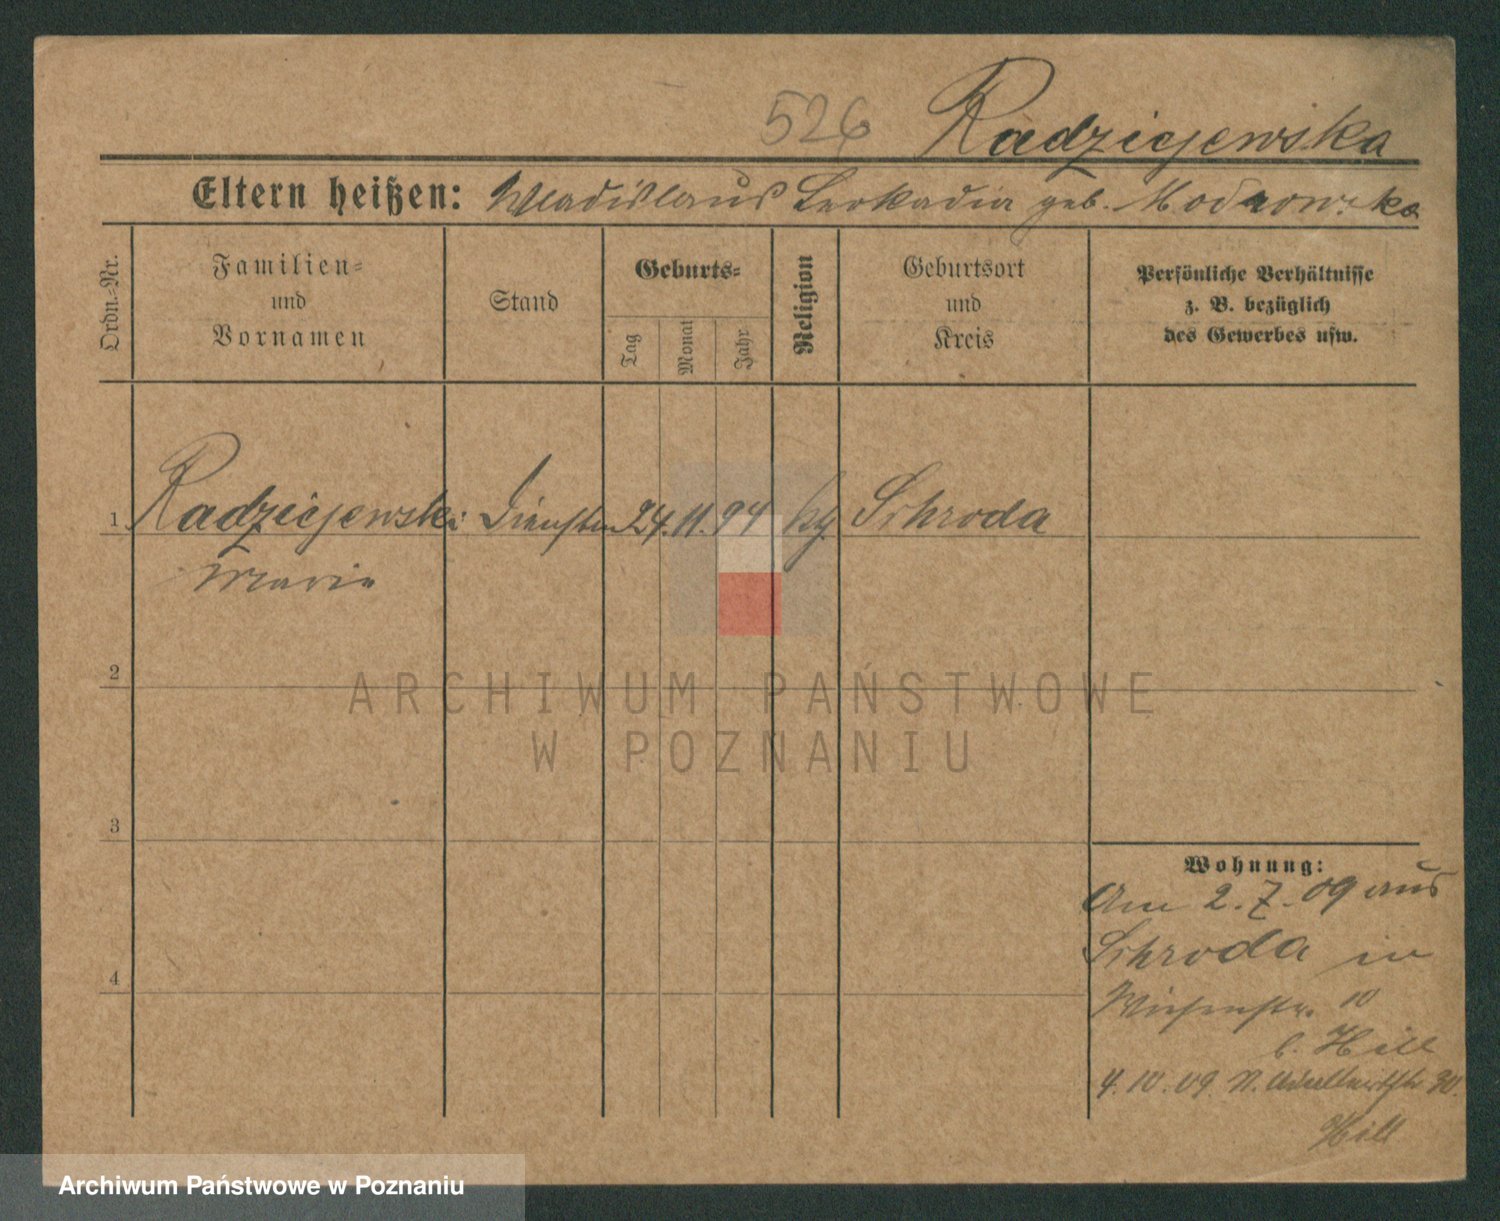 526 Radziejewska
Eltern heißen: Wladislaus Leokadia geb. Modrowska
Ordn.-Nr.
Familien-
und
Vornamen
Stand
Geburts-
Tag
Monat
Jahr
Religion
Geburtsort
und
Kreis
Persönliche Verhältnisse
z. B. bezüglich
des Gewerbes usw.
1 Radziejewski 24. 11. 94 Schroda
Marie
2
ARCHIWUM PAŃSTWOWE
W POZNANIU
3
Wohnung:
Am 2. 7. 09 aus
Schroda in
4
Wiesenstr. 10
b. Hill
4. 10. 09. N. Adalbertstr 30.
Hill
Archiwum Państwowe w Poznaniu